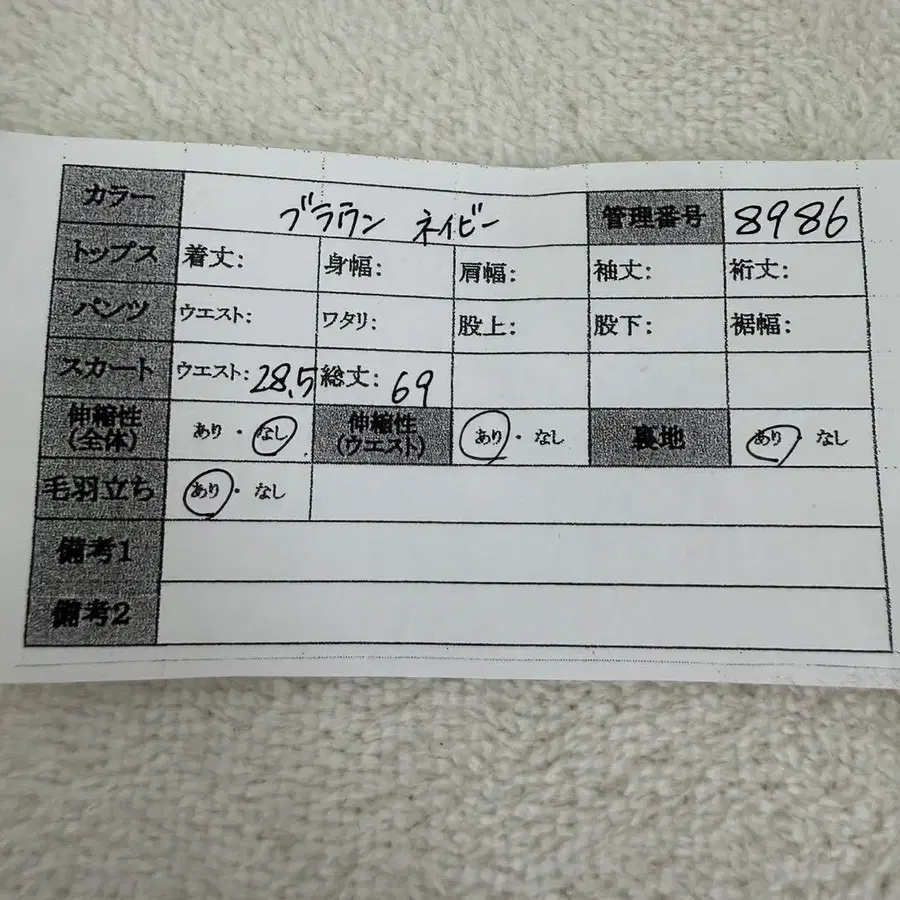 カラー ブラウン ネイビー 管理番号 8986
トップス 着丈: 身幅: 肩幅: 袖丈: 裄丈:
パンツ ウエスト: ワタリ: 股上: 股下: 裾幅:
スカート ウエスト: 28.5 総丈: 69
伸縮性 (全体) あり・なし 伸縮性 (ウエスト) あり・なし 裏地 あり・なし
毛羽立ち あり・なし
備考1
備考2